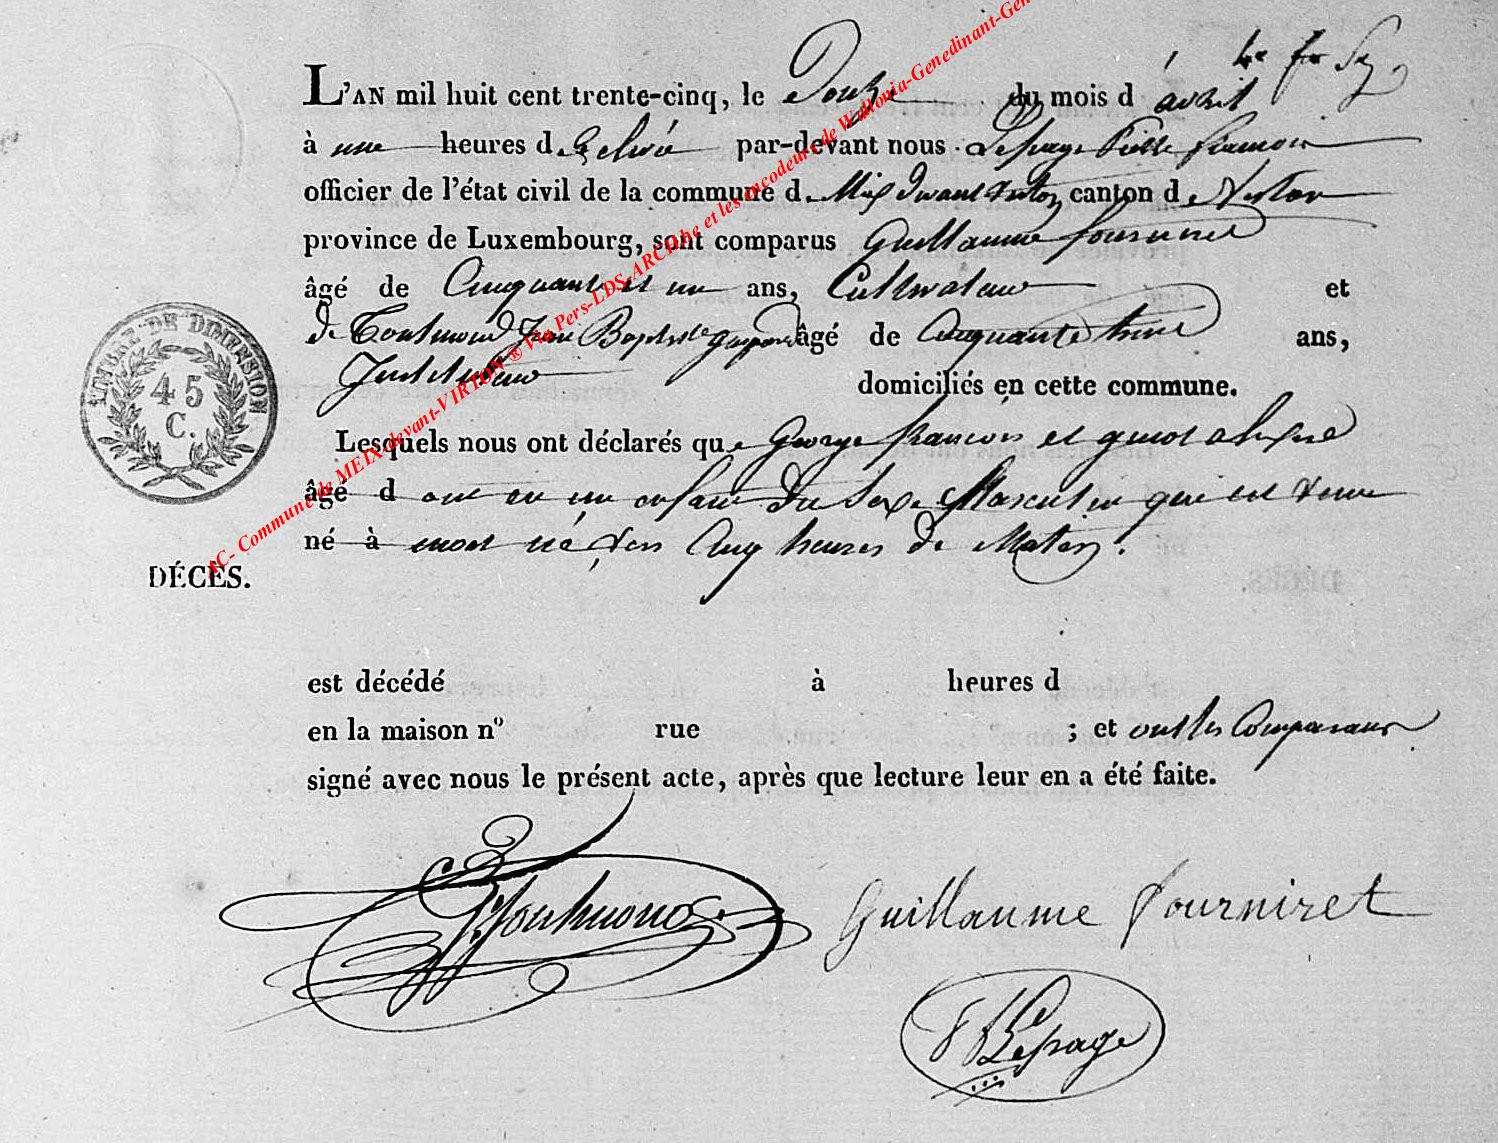 4e fr Sy
L'AN mil huit cent trente-cinq, le Douze du mois d'avril
à une heures de relevée par-devant nous Lepage Pierre françois
officier de l'état civil de la commune de Meix Devant Virton canton de Virton
province de Luxembourg, sont comparus Guillaume fourniret
âgé de Cinquante et un ans, Cultivateur et
de Toutmond Jean Baptiste gaspard âgé de Cinquante trois ans,
Instituteur domiciliés en cette commune.
Lesquels nous ont déclarés que George francois et
âgé d ont eu un enfant du Sexe Masculin qui est venu
né à mort né vers Cinq heures de Matin.
DÉCÈS.
est décédé à heures d
en la maison nº rue ; et ont les Comparants
signé avec nous le présent acte, après que lecture leur en a été faite.
Guillaume fourniret
Lepage
TIMBRE DE DIMENSION
45
C.
AC- Commune de MEIX-devant-VIRTON ® Via Pers-LDS-ARCHbe et les encodeurs de Wallonia-Genedinant-Gen